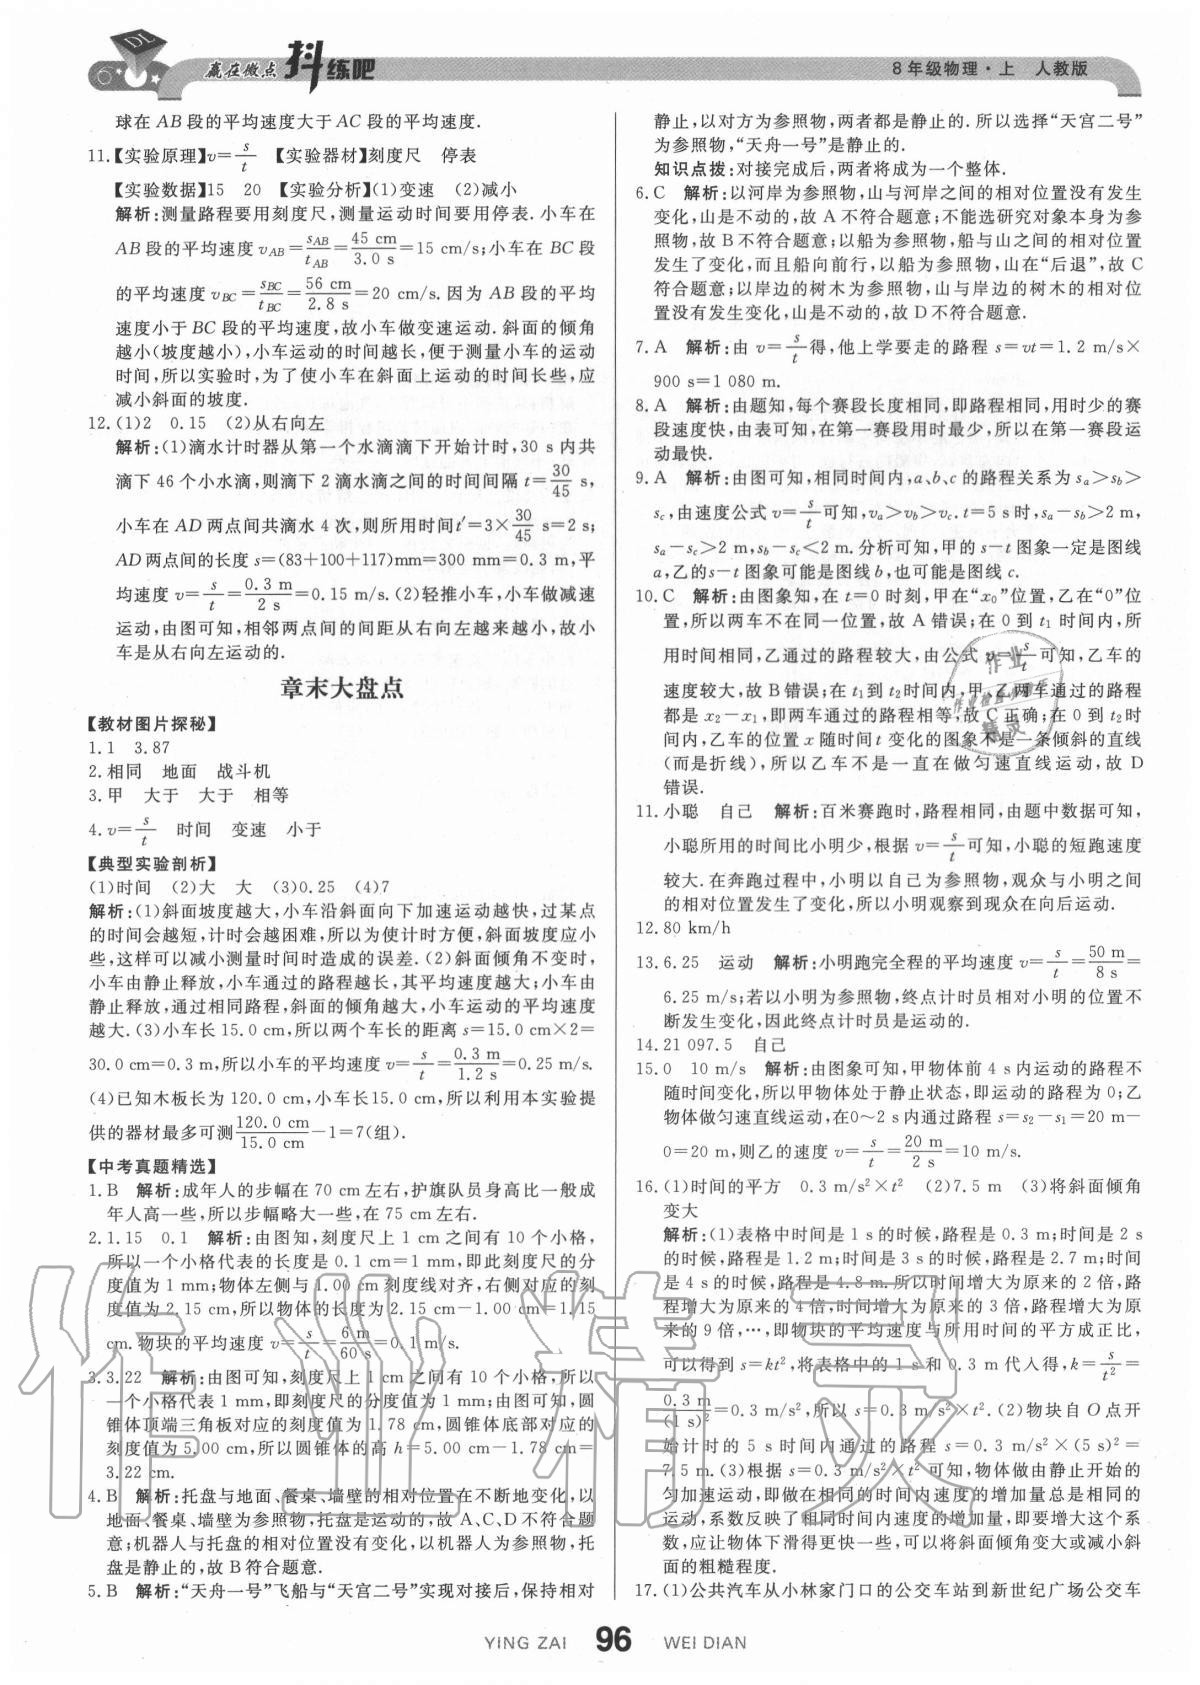 赢在微点 抖练吧
8年级物理·上 人教版
球在AB段的平均速度大于AC段的平均速度.
11.【实验原理】v=s/t 【实验器材】刻度尺 停表
【实验数据】15 20 【实验分析】(1)变速 (2)减小
解析:测量路程要用刻度尺,测量运动时间要用停表.小车在
AB段的平均速度vAB=sAB/tAB=45 cm/3.0 s=15 cm/s;小车在BC段
的平均速度vBC=sBC/tBC=56 cm/2.8 s=20 cm/s.因为AB段的平均
速度小于BC段的平均速度,故小车做变速运动.斜面的倾角
越小(坡度越小),小车运动的时间越长,便于测量小车的运动
时间,所以实验时,为了使小车在斜面上运动的时间长些,应
减小斜面的坡度.
12.(1)2 0.15 (2)从右向左
解析:(1)滴水计时器从第一个水滴滴下开始计时,30 s内共
滴下46个小水滴,则滴下2滴水滴之间的时间间隔t=30/45 s,
小车在AD两点间共滴水4次,则所用时间t′=3×30/45 s=2 s;
AD两点间的长度s=(83+100+117)mm=300 mm=0.3 m,平
均速度v=s/t=0.3 m/2 s=0.15 m/s.(2)轻推小车,小车做减速
运动,由图可知,相邻两点间的间距从右向左越来越小,故小
车是从右向左运动的.
章末大盘点
【教材图片探秘】
1.1 3.87
2.相同 地面 战斗机
3.甲 大于 大于 相等
4.v=s/t 时间 变速 小于
【典型实验剖析】
(1)时间 (2)大 大 (3)0.25 (4)7
解析:(1)斜面坡度越大,小车沿斜面向下加速运动越快,过某点
的时间会越短,计时会越困难,所以为使计时方便,斜面坡度应小
些,这样可以减小测量时间时造成的误差.(2)斜面倾角不变时,
小车由静止释放,小车通过的路程越长,其平均速度越大;小车由
静止释放,通过相同路程,斜面的倾角越大,小车运动的平均速度
越大.(3)小车长15.0 cm,所以两个车长的距离s=15.0 cm×2=
30.0 cm=0.3 m,所以小车的平均速度v=s/t=0.3 m/1.2 s=0.25 m/s.
(4)已知木板长为120.0 cm,小车长15.0 cm,所以利用本实验提
供的器材最多可测120.0 cm/15.0 cm-1=7(组).
【中考真题精选】
1.B 解析:成年人的步幅在70 cm左右,护旗队员身高比一般成
年人高一些,所以步幅略大一些,在75 cm左右.
2.1.15 0.1 解析:由图知,刻度尺上1 cm之间有10个小格,
所以一个小格代表的长度是0.1 cm=1 mm,即此刻度尺的分
度值为1 mm;物体左侧与1.00 cm刻度线对齐,右侧对应的刻
度值为2.15 cm,所以物体的长度为2.15 cm-1.00 cm=1.15
cm.物块的平均速度v=s/t=6 m/60 s=0.1 m/s.
3.3.22 解析:由图可知,刻度尺上1 cm之间有10个小格,所以
一个小格代表1 mm,即刻度尺的分度值为1 mm;由图可知,圆
锥体顶端三角板对应的刻度值为1.78 cm,圆锥体底部对应的
刻度值为5.00 cm,所以圆锥体的高h=5.00 cm-1.78 cm=
3.22 cm.
4.B 解析:托盘与地面、餐桌、墙壁的相对位置在不断地变化,以
地面、餐桌、墙壁为参照物,托盘是运动的,故A、C、D不符合题
意;机器人与托盘的相对位置没有变化,以机器人为参照物,托
盘是静止的,故B符合题意.
5.B 解析:“天舟一号”飞船与“天宫二号”实现对接后,保持相对
静止,以对方为参照物,两者都是静止的.所以选择“天宫二号”
为参照物,“天舟一号”是静止的.
知识点拨:对接完成后,两者将成为一个整体.
6.C 解析:以河岸为参照物,山与河岸之间的相对位置没有发生
变化,山是不动的,故A不符合题意;不能选研究对象本身为参
照物,故B不符合题意;以船为参照物,船与山之间的相对位置
发生了变化,而且船向前行,以船为参照物,山在“后退”,故C
符合题意;以岸边的树木为参照物,山与岸边的树木的相对位
置没有发生变化,山是不动的,故D不符合题意.
7.A 解析:由v=s/t得,他上学要走的路程s=vt=1.2 m/s×
900 s=1 080 m.
8.A 解析:由题知,每个赛段长度相同,即路程相同,用时少的赛
段速度快,由表可知,在第一赛段用时最少,所以在第一赛段运
动最快.
9.A 解析:由图可知,相同时间内,a、b、c的路程关系为sa>sb>
sc,由速度公式v=s/t可知,va>vb>vc.t=5 s时,sa-sb>2 m,
sa-sc>2 m,sb-sc<2 m.分析可知,甲的s-t图象一定是图线
a,乙的s-t图象可能是图线b,也可能是图线c.
10.C 解析:由图象知,在t=0时刻,甲在“x0”位置,乙在“0”位
置,所以两车不在同一位置,故A错误;在0到t1时间内,所
用时间相同,乙通过的路程较大,由公式v=s/t可知,乙车的
速度较大,故B错误;在t1到t2时间内,甲、乙两车通过的路程
都是x2-x1,即两车通过的路程相等,故C正确;在0到t2时
间内,乙车的位置x随时间t变化的图象不是一条倾斜的直线
(而是折线),所以乙车不是一直在做匀速直线运动,故D
错误.
11.小聪 自己 解析:百米赛跑时,路程相同,由题中数据可知,
小聪所用的时间比小明少,根据v=s/t可知,小聪的短跑速度
较大.在奔跑过程中,小明以自己为参照物,观众与小明之间
的相对位置发生了变化,所以小明观察到现众在向后运动.
12.80 km/h
13.6.25 运动 解析:小明跑完全程的平均速度v=s/t=50 m/8 s=
6.25 m/s;若以小明为参照物,终点计时员相对小明的位置不
断发生变化,因此终点计时员是运动的.
14.21 097.5 自己
15.0 10 m/s 解析:由图象可知,甲物体前4 s内运动的路程不
随时间变化,所以甲物体处于静止状态,即运动的路程为0;乙
物体做匀速直线运动,在0~2 s内通过路程s=s2-s1=20 m-
0=20 m,则乙的速度v=s/t=20 m/2 s=10 m/s.
16.(1)时间的平方 0.3 m/s²×t² (2)7.5 m (3)将斜面倾角
变大
解析:(1)表格中时间是1 s的时候,路程是0.3 m;时间是2 s
的时候,路程是1.2 m;时间是3 s的时候,路程是2.7 m;时间
是4 s的时候,路程是4.8 m.所以时间增大为原来的2倍,路
程增大为原来的4倍,时间增大为原来的3倍,路程增大为原
来的9倍,…,即物块的平均速度与所用时间的平方成正比,
可以得到s=kt²,将表格中的1 s和0.3 m代入得,k=s/t²=
0.3 m/(1 s)²=0.3 m/s²,所以s=0.3 m/s²×t².(2)物块自O点开
始计时的5 s时间内通过的路程s=0.3 m/s²×(5 s)²=
7.5 m.(3)根据s=0.3 m/s²×t²可知,物体做由静止开始的
匀加速运动,即做在相同的时间内速度的增加量总是相同的
运动,系数反映了相同时间内速度的增加量,即要增大这个系
数,应让物体下滑得更快一些,可以将斜面倾角变大或减小斜
面的粗糙程度.
17.(1)公共汽车从小林家门口的公交车站到新世纪广场公交车
YING ZAI 96 WEI DIAN
作业精灵